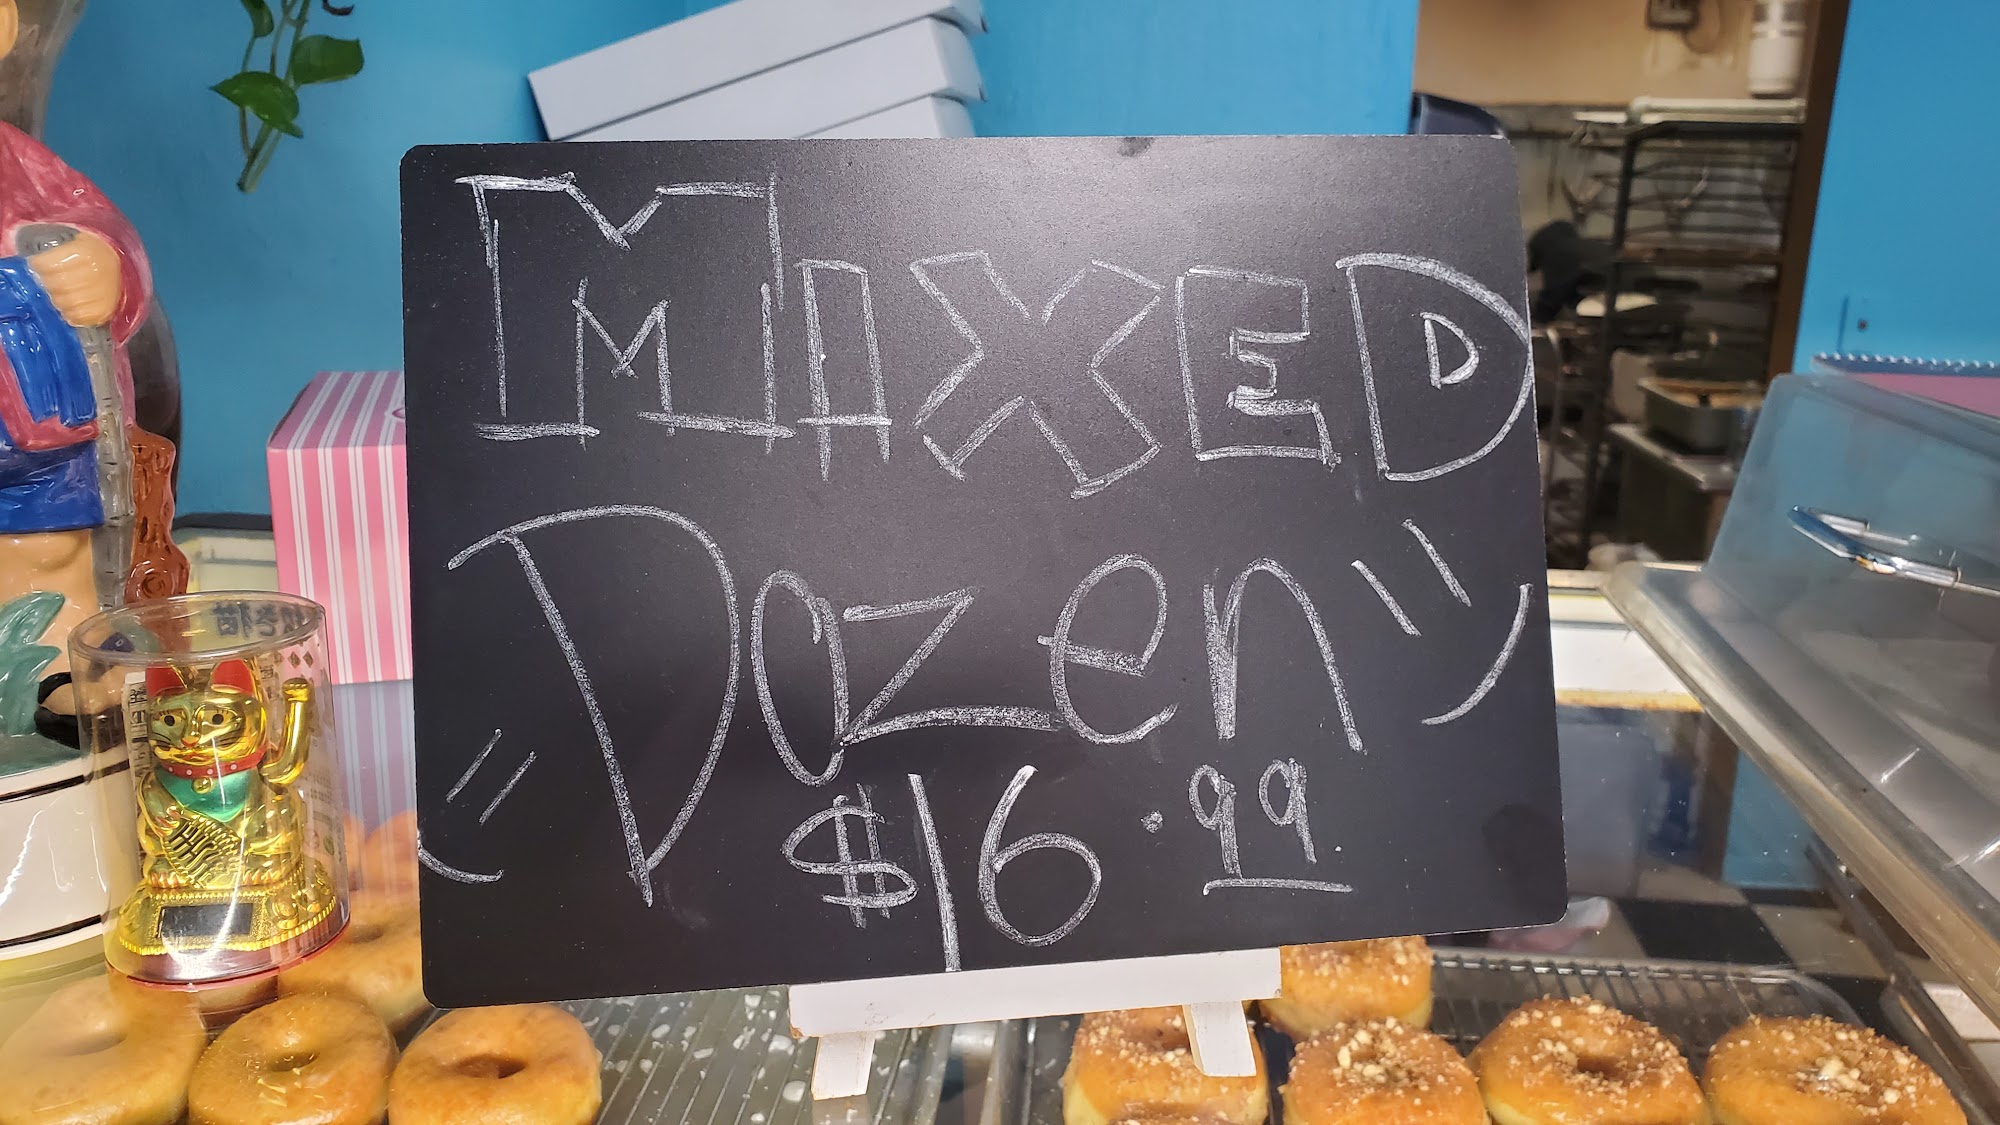 MIXED
Dozen
$16.99